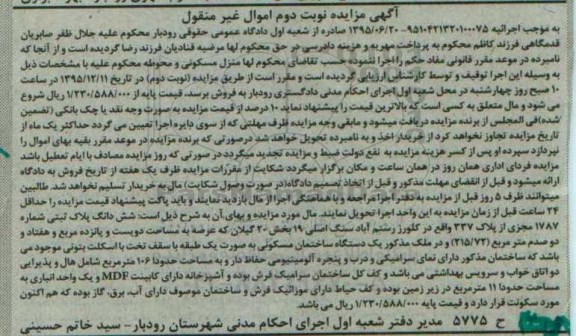 آگهی مزایده نوبت دوم اموال غیر منقول
به موجب اجرائیه ۹۵۱۰۴۲۱۳۲۰۱۰۰۰۷۵-۱۳۹۵/۰۶/۲۰ صادره از شعبه اول دادگاه عمومی حقوقی رودبار محکوم علیه جلال ظفر صابریان
قدمگاهی فرزند کاظم محکوم به پرداخت مهریه و هزینه دادرسی در حق محکوم لها مرضیه قنادیان فرزند رضا گردیده است و از آنجا که
نامبرده در موعد مقرر قانونی مفاد حکم را اجرا ننموده حسب تقاضای محکوم لها منزل مسکونی و محوطه محکوم علیه با مشخصات ذیل
به وسیله این اجرا توقیف و توسط کارشناس ارزیابی گردیده است و مقرر است از طریق مزایده (نوبت دوم) در تاریخ ۱۳۹۵/۱۲/۱۱ در ساعت
۱۰ صبح روز چهارشنبه در محل شعبه اول اجرای احکام مدنی دادگستری رودبار به فروش برسد. قیمت پایه از ۱/۲۳۰/۵۸۸/۰۰۰ ریال شروع
می شود و مال متعلق به کسی است که بالاترین قیمت را پیشنهاد نماید ۱۰ درصد از قیمت مزایده به صورت وجه نقد یا چک بانکی (تضمین
شده) فی المجلس از برنده مزایده دریافت میشود و مابقی وجه مزایده ظرف مهلتی که از سوی دایره اجرا تعیین می گردد حداکثر یک ماه از
تاریخ مزایده تجاوز نخواهد کرد از خریدار اخذ و به نامبرده تحویل خواهد شد درصورتی که برنده مزایده در موعد مقرر بقیه بهای اموال را
نپردازد سپرده او پس از کسر هزینه مزایده به نفع دولت ضبط و مزایده تجدید میگردد در صورتی که روز مزایده مصادف با ایام تعطیل باشد
مزایده فردای اداری همان روز در همان ساعت و مکان برگزار میگردد شکایت از مقررات مزایده ظرف یک هفته از تاریخ فروش به دادگاه
ارائه میشود و قبل از انقضای مهلت مذکور و قبل از اتخاذ تصمیم دادگاه (در صورت وصول شکایت) مال به خریدار تسلیم نخواهد شد. طالبین
میتوانند ظرف ۵ روز قبل از مزایده به دفتر اجرا مراجعه و با هماهنگی اجرا از مال بازدید نمایند و باید پاکت پیشنهاد قیمت مزایده را حداقل
۲۴ ساعت قبل از زمان مزایده به این واحد اجرا تحویل نمایند. مال مورد مزایده و بهای آن به شرح ذیل است: شش دانگ پلاک ثبتی شماره
۱۷۸۷ مجزی از پلاک ۳۳۷ واقع در کلورز رستم آباد سنگ اصلی ۱۹ بخش ۲۰ گیلان که عرصه به مساحت دویست و پانزده مریع و هفتاد و
دو صدم متر مربع (۲۱۵/۷۲) و در ملک مذکور یک دستگاه ساختمان مسکونی به صورت یک طبقه با سقف تخت با اسکلت بتونی موجود می
باشد که ساختمان مذکور دارای نمای سرامیکی و درب و پنجره آلومینیومی حفاظ دار و به مساحت حدودا ۱۰۶ مترمربع شامل هال و پذیرایی
دو اتاق خواب و سرویس بهداشتی می باشد و کف کل ساختمان سرامیک فرش بوده و آشپزخانه دارای کابینت MDF و یک واحد انباری به
مساحت حدودا ۱۱ مترمربع در زیر زمین بوده و کف حیاط دارای موزائیک فرش و ساختمان موصوف دارای آب، برق، گاز بوده که هم اکنون
مورد سکونت قرار دارد و قیمت پایه ۱/۲۳۰/۵۸۸/۰۰۰ ریال می باشد.
ح ۵۷۷۵ مدیر دفتر شعبه اول اجرای احکام مدنی شهرستان رودبار- سید خاتم حسینی